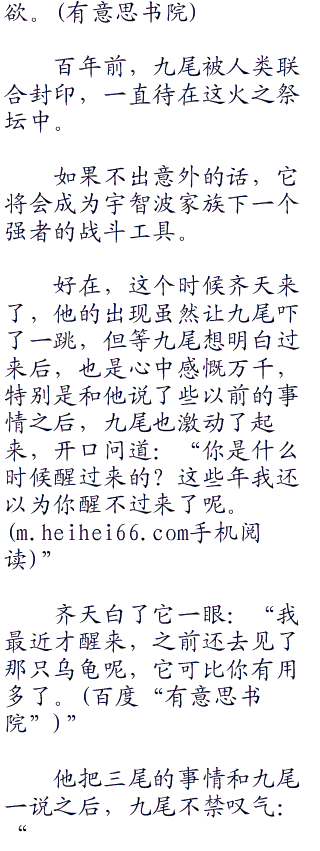 欲。(有意思书院)
百年前，九尾被人类联
合封印，一直待在这火之祭
坛中。
如果不出意外的话，它
将会成为宇智波家族下一个
强者的战斗工具。
好在，这个时候齐天来
了，他的出现虽然让九尾吓
了一跳，但等九尾想明白过
来后，也是心中感慨万千，
特别是和他说了些以前的事
情之后，九尾也激动了起
来，开口问道：“你是什么
时候醒过来的？这些年我还
以为你醒不过来了呢。
(m.heihei66.com手机阅
读)”
齐天白了它一眼：“我
最近才醒来，之前还去见了
那只乌龟呢，它可比你有用
多了。(百度“有意思书
院”)”
他把三尾的事情和九尾
一说之后，九尾不禁叹气：
“